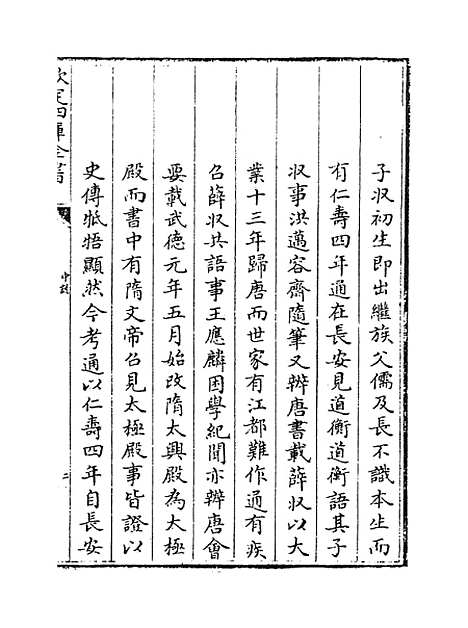 子收初生即出繼族父儒及長不識本生而
有仁壽四年通在長安見道衡道衡語其子
收事洪邁容齋隨筆又辨唐書載薛收以大
業十三年歸唐而世家有江都難作通有疾
召薛收共語事王應麟困學紀聞亦辨唐會
要載武德元年五月始改隋太興殿為太極
殿而書中有隋文帝召見太極殿事皆證以
史傳牴牾顯然今考通以仁壽四年自長安
欽定四庫全書
中說
二